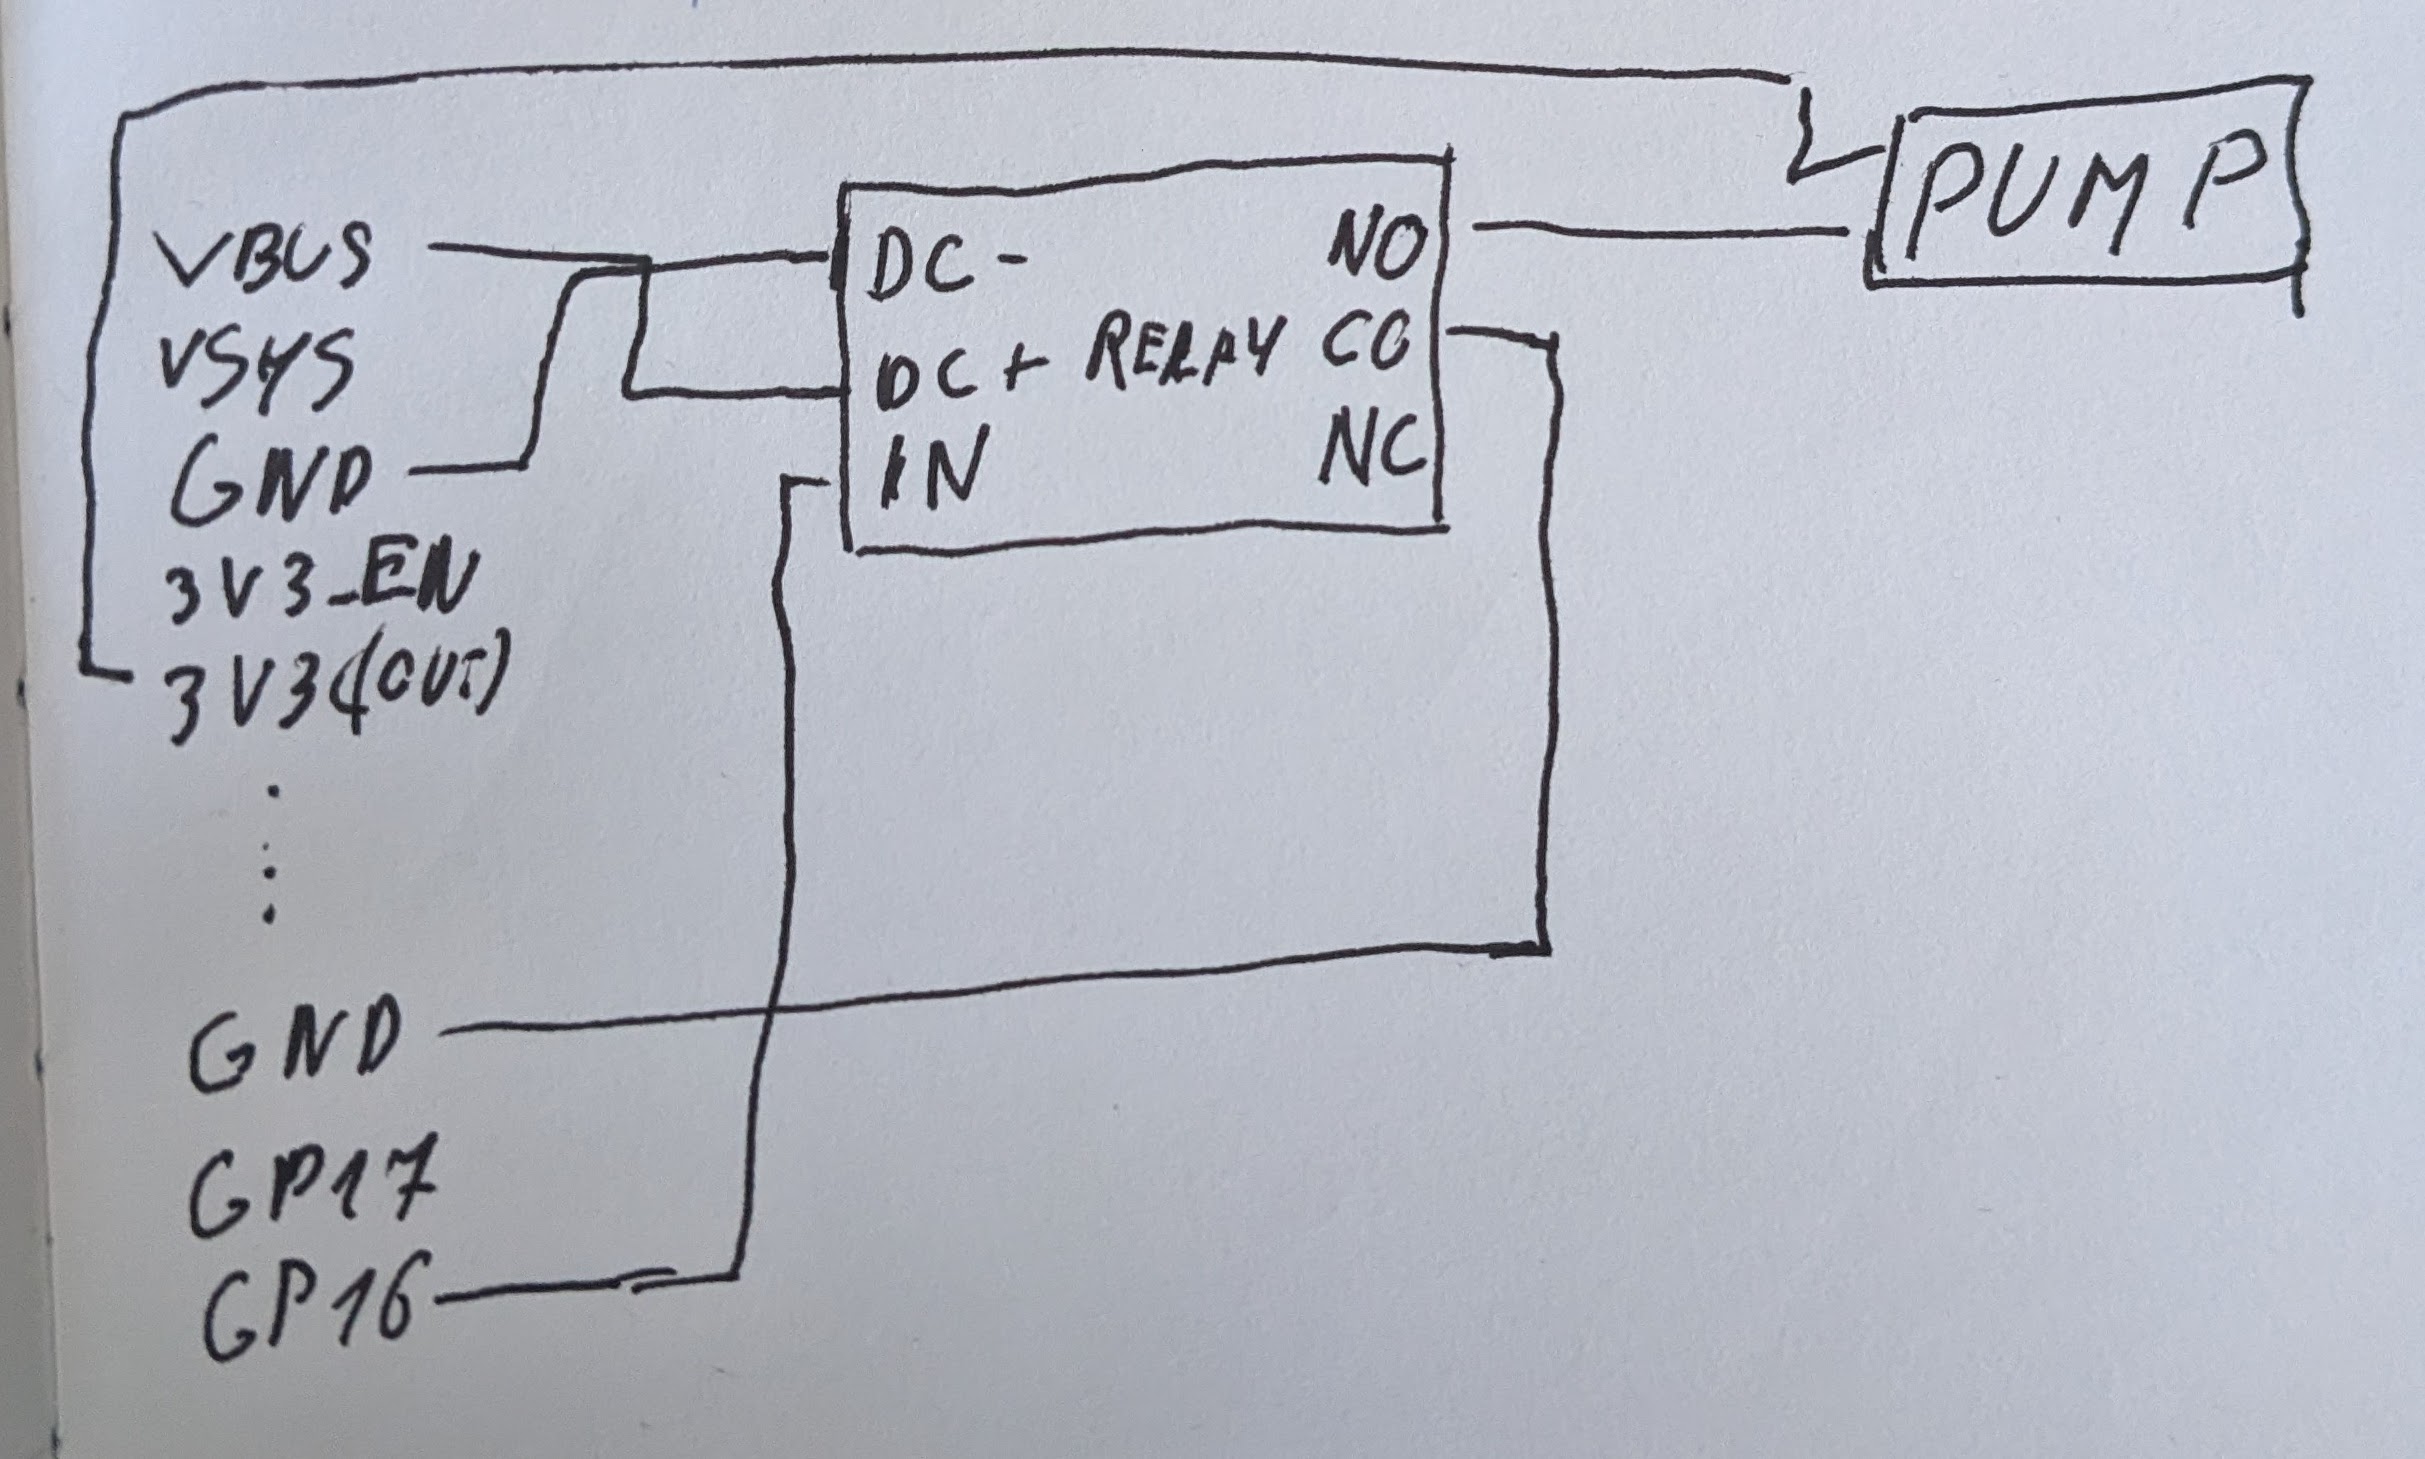 VBUS
VSYS
GND
3V3_EN
3V3(OUT)
GND
GP17
GP16
DC-
DC+
IN
RELAY
NO
CO
NC
PUMP